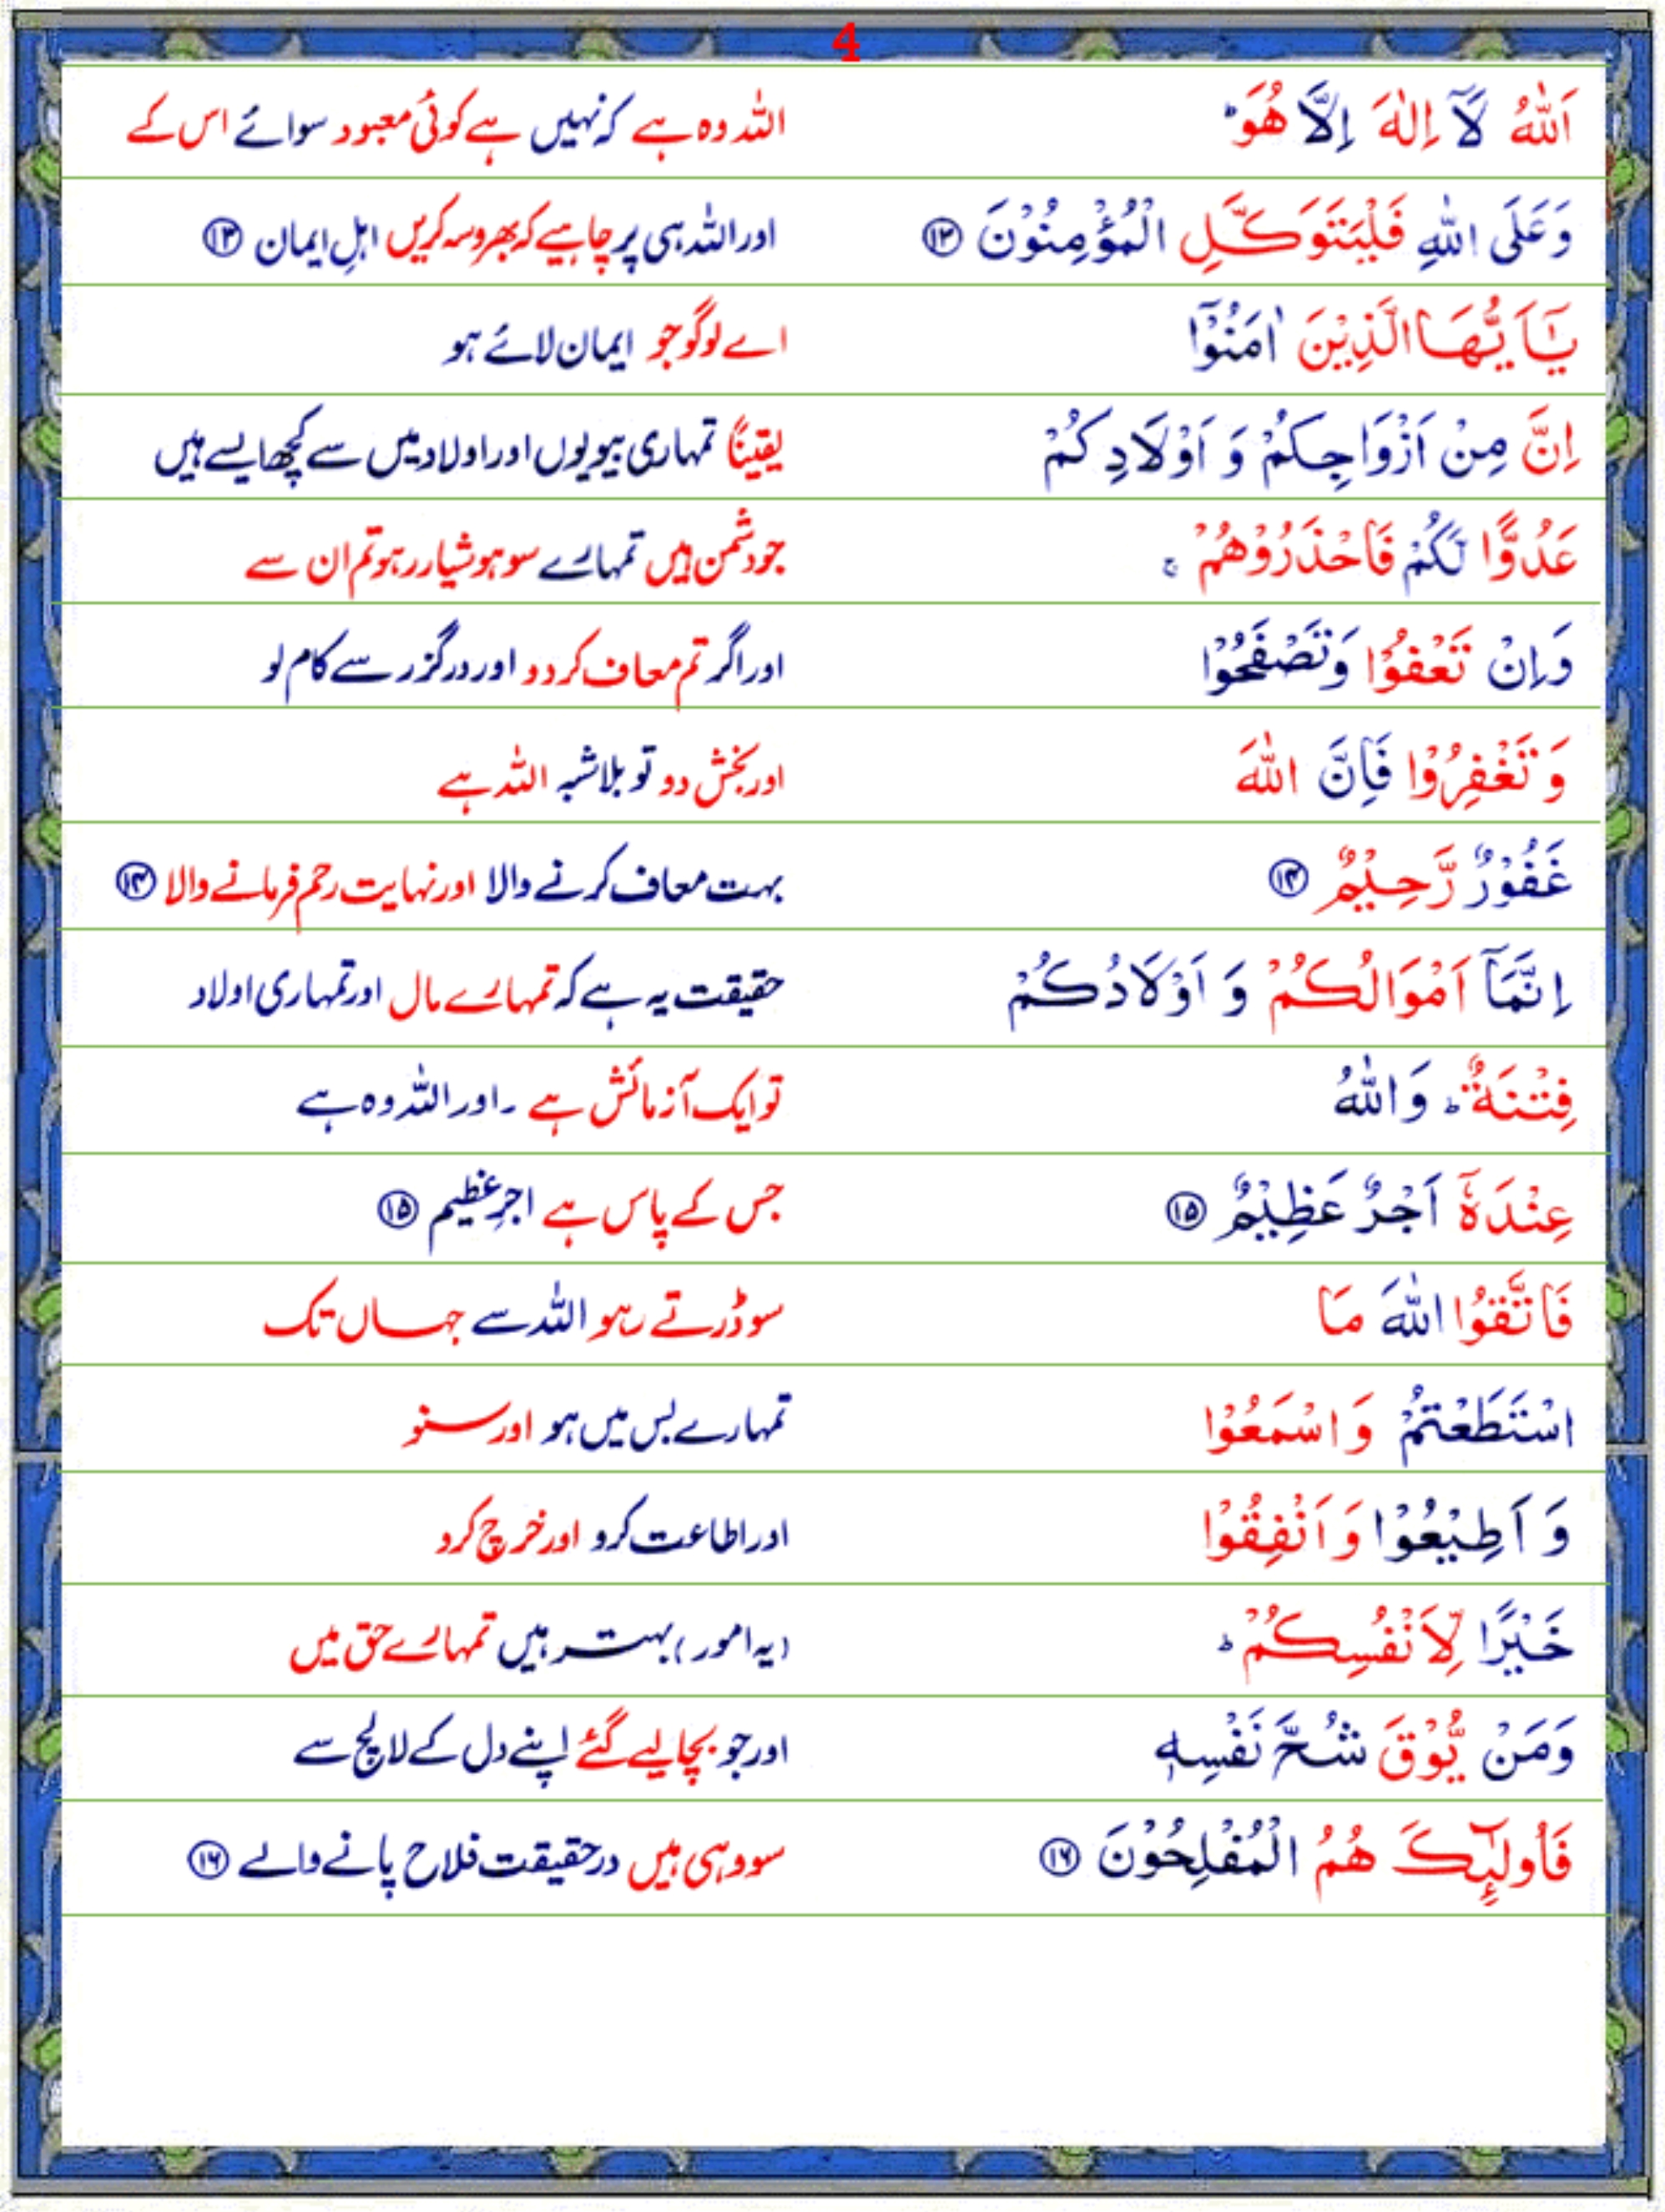 4
اَللّٰهُ لَاۤ اِلٰهَ اِلَّا هُوَ ؕ اللہ وہ ہے کہ نہیں ہے کوئی معبود سوائے اس کے
وَعَلَى اللّٰهِ فَلْيَتَوَكَّلِ الْمُؤْمِنُوْنَ ⑬ اور اللہ ہی پر چاہیے کہ بھروسہ کریں اہلِ ایمان ⑬
يٰۤاَيُّهَا الَّذِيْنَ اٰمَنُوْۤا اے لوگو جو ایمان لائے ہو
اِنَّ مِنْ اَزْوَاجِكُمْ وَ اَوْلَادِكُمْ یقیناً تمہاری بیویوں اور اولاد میں سے کچھ ایسے ہیں
عَدُوًّا لَّكُمْ فَاحْذَرُوْهُمْ ۚ جو دشمن ہیں تمہارے سو ہوشیار رہو تم ان سے
وَاِنْ تَعْفُوْا وَتَصْفَحُوْا اور اگر تم معاف کر دو اور درگزر سے کام لو
وَ تَغْفِرُوْا فَاِنَّ اللّٰهَ اور بخش دو تو بلاشبہ اللہ ہے
غَفُوْرٌ رَّحِيْمٌ ⑭ بہت معاف کرنے والا اور نہایت رحم فرمانے والا ⑭
اِنَّمَاۤ اَمْوَالُكُمْ وَ اَوْلَادُكُمْ حقیقت یہ ہے کہ تمہارے مال اور تمہاری اولاد
فِتْنَةٌ ؕ وَ اللّٰهُ تو ایک آزمائش ہے ۔ اور اللہ وہ ہے
عِنْدَهٗۤ اَجْرٌ عَظِيْمٌ ⑮ جس کے پاس ہے اجرِ عظیم ⑮
فَاتَّقُوا اللّٰهَ مَا سو ڈرتے رہو اللہ سے جہاں تک
اسْتَطَعْتُمْ وَ اسْمَعُوْا تمہارے بس میں ہو اور سنو
وَ اَطِيْعُوْا وَ اَنْفِقُوْا اور اطاعت کرو اور خرچ کرو
خَيْرًا لِّاَنْفُسِكُمْ ؕ (یہ امور) بہتر ہیں تمہارے حق میں
وَمَنْ يُّوْقَ شُحَّ نَفْسِهٖ اور جو بچا لیے گئے اپنے دل کے لالچ سے
فَاُولٰٓئِكَ هُمُ الْمُفْلِحُوْنَ ⑯ سو وہی ہیں درحقیقت فلاح پانے والے ⑯